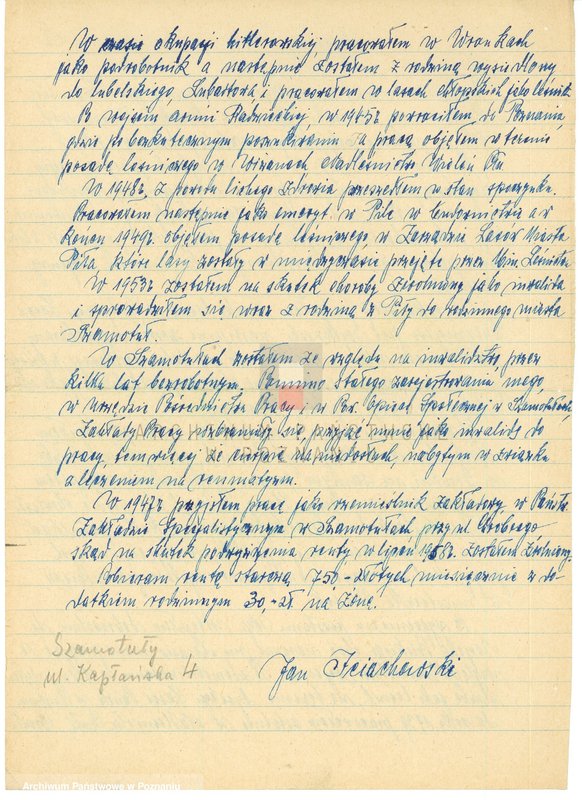 W czasie okupacji hitlerowskiej pracowałem w Wronkach
jako podrobotnik a następnie zostałem z rodziną wysiedlony
do lubelskiego, Lubartowa i pracowałem w lasach chłopskich jako leśnik.
Po wejściu armii Radzieckiej, w 1945r powróciłem do Poznania,
gdzie po bezskutecznym poszukiwaniu za pracą objąłem w terenie
posadę leśniczego w Nadleśnictwo Wieleń
W 1948r. z powodu lichego zdrowia przeszedłem w stan spoczynku.
Pracowałem następnie jako emeryt w Pile w budownictwie a w
końcu 1949r. objąłem posadę leśniczego w Zarządzie Lasów Miasta
Piła, które lasy zostały w międzyczasie przejęte przez Min. Leśnictwa
W 1953r zostałem na skutek choroby zwolniony jako inwalida
i sprowadziłem się wraz z rodziną z Piły do rodzinnego miasta
Szamotuł.
W Szamotułach zostałem ze względu na inwalidztwo przez
kilka lat bezrobotnym. Pomimo stałego zarejestrowania mego,
w Urzędzie Pośrednictwa Pracy i w Por. Opieki Społecznej w Szamotułach,
Zakłady Pracy wzbraniały się, przyjąć mnie jako inwalidę do
pracy, tem więcej że cierpię na nabytym w związku
z leczeniem na reumatyzm.
W 1947r przyjąłem pracę jako rzemieślnik zakładowy w Państw.
Zakładzie Specjalistycznym w Szamotułach przy ul.
skąd na skutek podwyższenia renty w lipcu 1958r. zostałem zwolniony.
Pobieram rentę starczą 750- złotych miesięcznie z do-
datkiem rodzinnym 30- zł na żonę.
Szamotuły
ul. Kapłańska 4
Jan Iciachowski
Archiwum Państwowe w Poznaniu